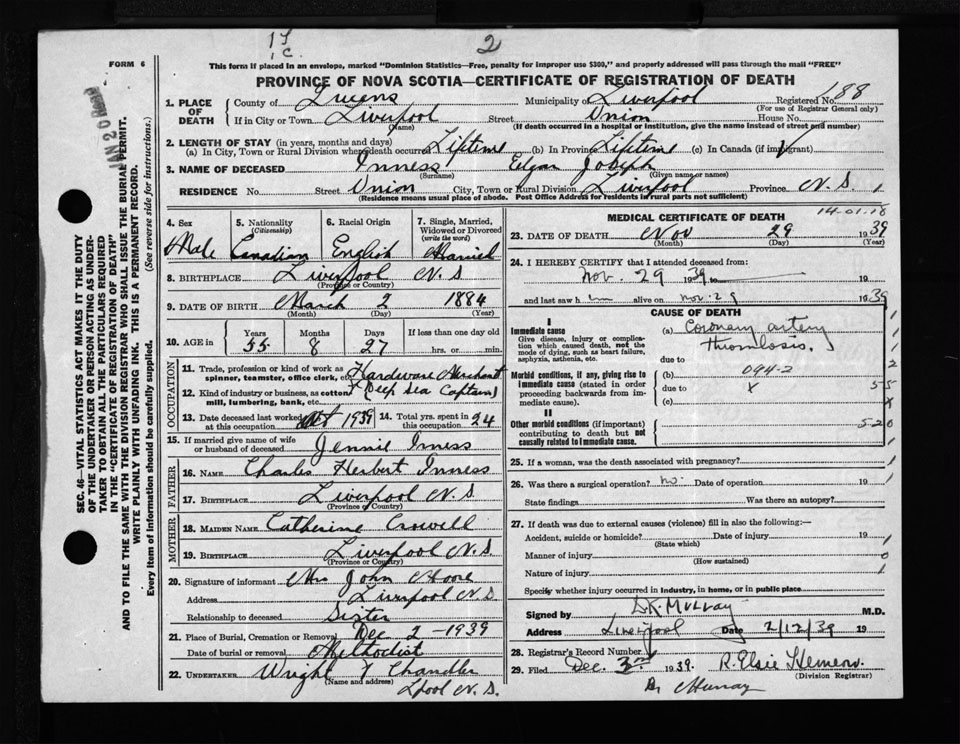 15
C
2
FORM 6
This form if placed in an envelope, marked "Dominion Statistics—Free, penalty for improper use $300," and properly addressed will pass through the mail "FREE"
PROVINCE OF NOVA SCOTIA—CERTIFICATE OF REGISTRATION OF DEATH
JAN 20
SEC. 46—VITAL STATISTICS ACT MAKES IT THE DUTY
OF THE UNDERTAKER OR PERSON ACTING AS UNDER-
TAKER TO OBTAIN ALL THE PARTICULARS REQUIRED
IN THE "CERTIFICATE OF REGISTRATION OF DEATH"
AND TO FILE THE SAME WITH THE DIVISION REGISTRAR WHO SHALL ISSUE THE BURIAL PERMIT.
WRITE PLAINLY WITH UNFADING INK. THIS IS A PERMANENT RECORD.
Every item of Information should be carefully supplied. (See reverse side for instructions.)
1. PLACE OF DEATH County of Queens Municipality of Liverpool Registered No. 188
(For use of Registrar General only)
If in City or Town Liverpool Street Union House No.
(Name) (If death occurred in a hospital or institution, give the name instead of street and number)
2. LENGTH OF STAY (in years, months and days)
(a) In City, Town or Rural Division where death occurred Lifetime (b) In Province Lifetime (c) In Canada (if immigrant)
3. NAME OF DECEASED Inness Edgar Joseph
(Surname) (Given name or names)
RESIDENCE No. Street Union City, Town or Rural Division Liverpool Province N.S.
(Residence means usual place of abode. Post Office Address for residents in rural parts not sufficient)
4. Sex 5. Nationality (Citizenship) 6. Racial Origin 7. Single, Married, Widowed or Divorced (write the word)
Male Canadian English Married
8. BIRTHPLACE Liverpool N.S
(Province or Country)
9. DATE OF BIRTH March 2 1884
(Month) (Day) (Year)
10. AGE in Years Months Days If less than one day old
55 8 27 hrs. or min.
OCCUPATION
11. Trade, profession or kind of work as spinner, teamster, office clerk, etc. Hardware Merchant
12. Kind of industry or business, as cotton mill, lumbering, bank, etc. (Deep Sea Captain)
13. Date deceased last worked at this occupation Oct 1939 14. Total yrs. spent in this occupation 24
15. If married give name of wife or husband of deceased Jennie Inness
FATHER
16. NAME Charles Herbert Inness
17. BIRTHPLACE Liverpool N.S.
(Province or Country)
MOTHER
18. MAIDEN NAME Catherine Crowell
19. BIRTHPLACE Liverpool N.S.
(Province or Country)
20. Signature of informant Mrs John Moore
Address Liverpool N.S
Relationship to deceased Sister
21. Place of Burial, Cremation or Removal Dec 2 - 1939
Date of burial or removal Methodist
22. UNDERTAKER Wright & Chandler
(Name and address) Lpool N.S.
MEDICAL CERTIFICATE OF DEATH
14-01-18
23. DATE OF DEATH Nov 29 1939
(Month) (Day) (Year)
24. I HEREBY CERTIFY that I attended deceased from:
Nov. 29 1939 to 19
and last saw him alive on Nov. 29 1939
CAUSE OF DEATH
I
Immediate cause (a) Coronary artery
Give disease, injury or complication which caused death, not the mode of dying, such as heart failure, asphyxia, asthenia, etc.
thrombosis.
due to
Morbid conditions, if any, giving rise to immediate cause (stated in order proceeding backwards from immediate cause).
(b) 094-2
due to x
(c)
II
Other morbid conditions (if important) contributing to death but not causally related to immediate cause.
1
1
2
55
x
520
1
25. If a woman, was the death associated with pregnancy? 1
26. Was there a surgical operation? no. Date of operation 19 1
State findings Was there an autopsy?
27. If death was due to external causes (violence) fill in also the following:—
Accident, suicide or homicide? Date of injury 19 1
(State which)
Manner of injury 0
(How sustained)
Nature of injury 1
Specify whether injury occurred in Industry, in home, or in public place
Signed by D.K. Murray M.D.
Address Liverpool Date 2/12/39 19
28. Registrar's Record Number
29. Filed Dec. 3rd 1939. R. Elsie Hemeon.
(Division Registrar)